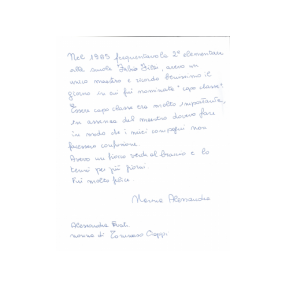 Nel 1965 frequentavo la 2ª elementare
alla scuola Fabio Filzi avevo un
unico maestro e ricordo benissimo il
giorno in cui fui nominata "capo classe".
Essere capo classe era molto importante,
in assenza del maestro dovevo fare
in modo che i miei compagni non
facessero confusione.
Avevo un fiocco verde al braccio e lo
tenni per più giorni
Fui molto felice
Nonna Alessandra
Alessandra
nonna di Tommaso